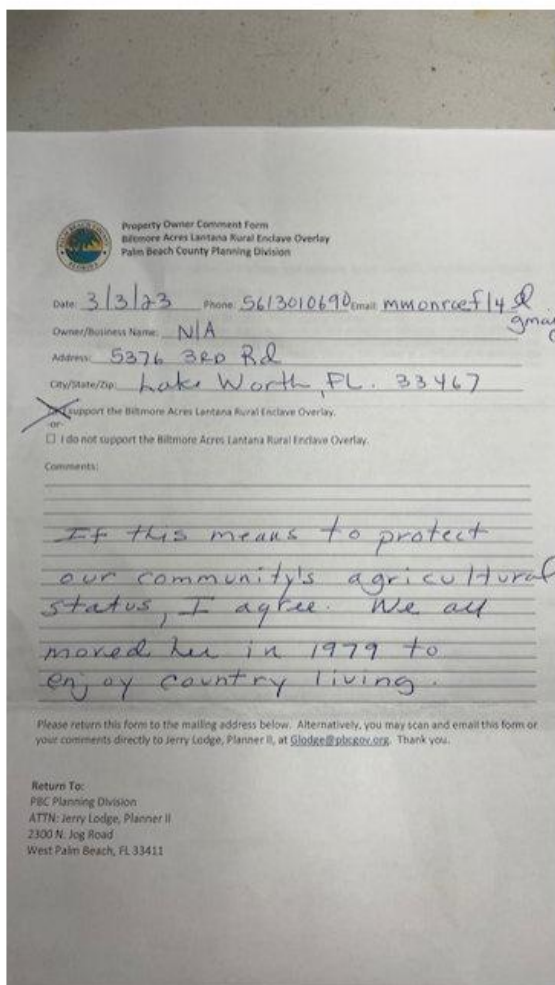 PALM BEACH COUNTY
FLORIDA
Property Owner Comment Form
Biltmore Acres Lantana Rural Enclave Overlay
Palm Beach County Planning Division
Date: 3/3/23 Phone: 5613010690 Email: mmonroefl4@
gma
Owner/Business Name: N/A
Address: 5376 3RD Rd
City/State/Zip: Lake Worth, FL. 33467
I support the Biltmore Acres Lantana Rural Enclave Overlay.
-or-
☐ I do not support the Biltmore Acres Lantana Rural Enclave Overlay.
Comments:
If this means to protect
our community's agricultural
status, I agree. We all
moved her in 1979 to
enjoy country living.
Please return this form to the mailing address below. Alternatively, you may scan and email this form or
your comments directly to Jerry Lodge, Planner II, at Glodge@pbcgov.org. Thank you.
Return To:
PBC Planning Division
ATTN: Jerry Lodge, Planner II
2300 N. Jog Road
West Palm Beach, FL 33411